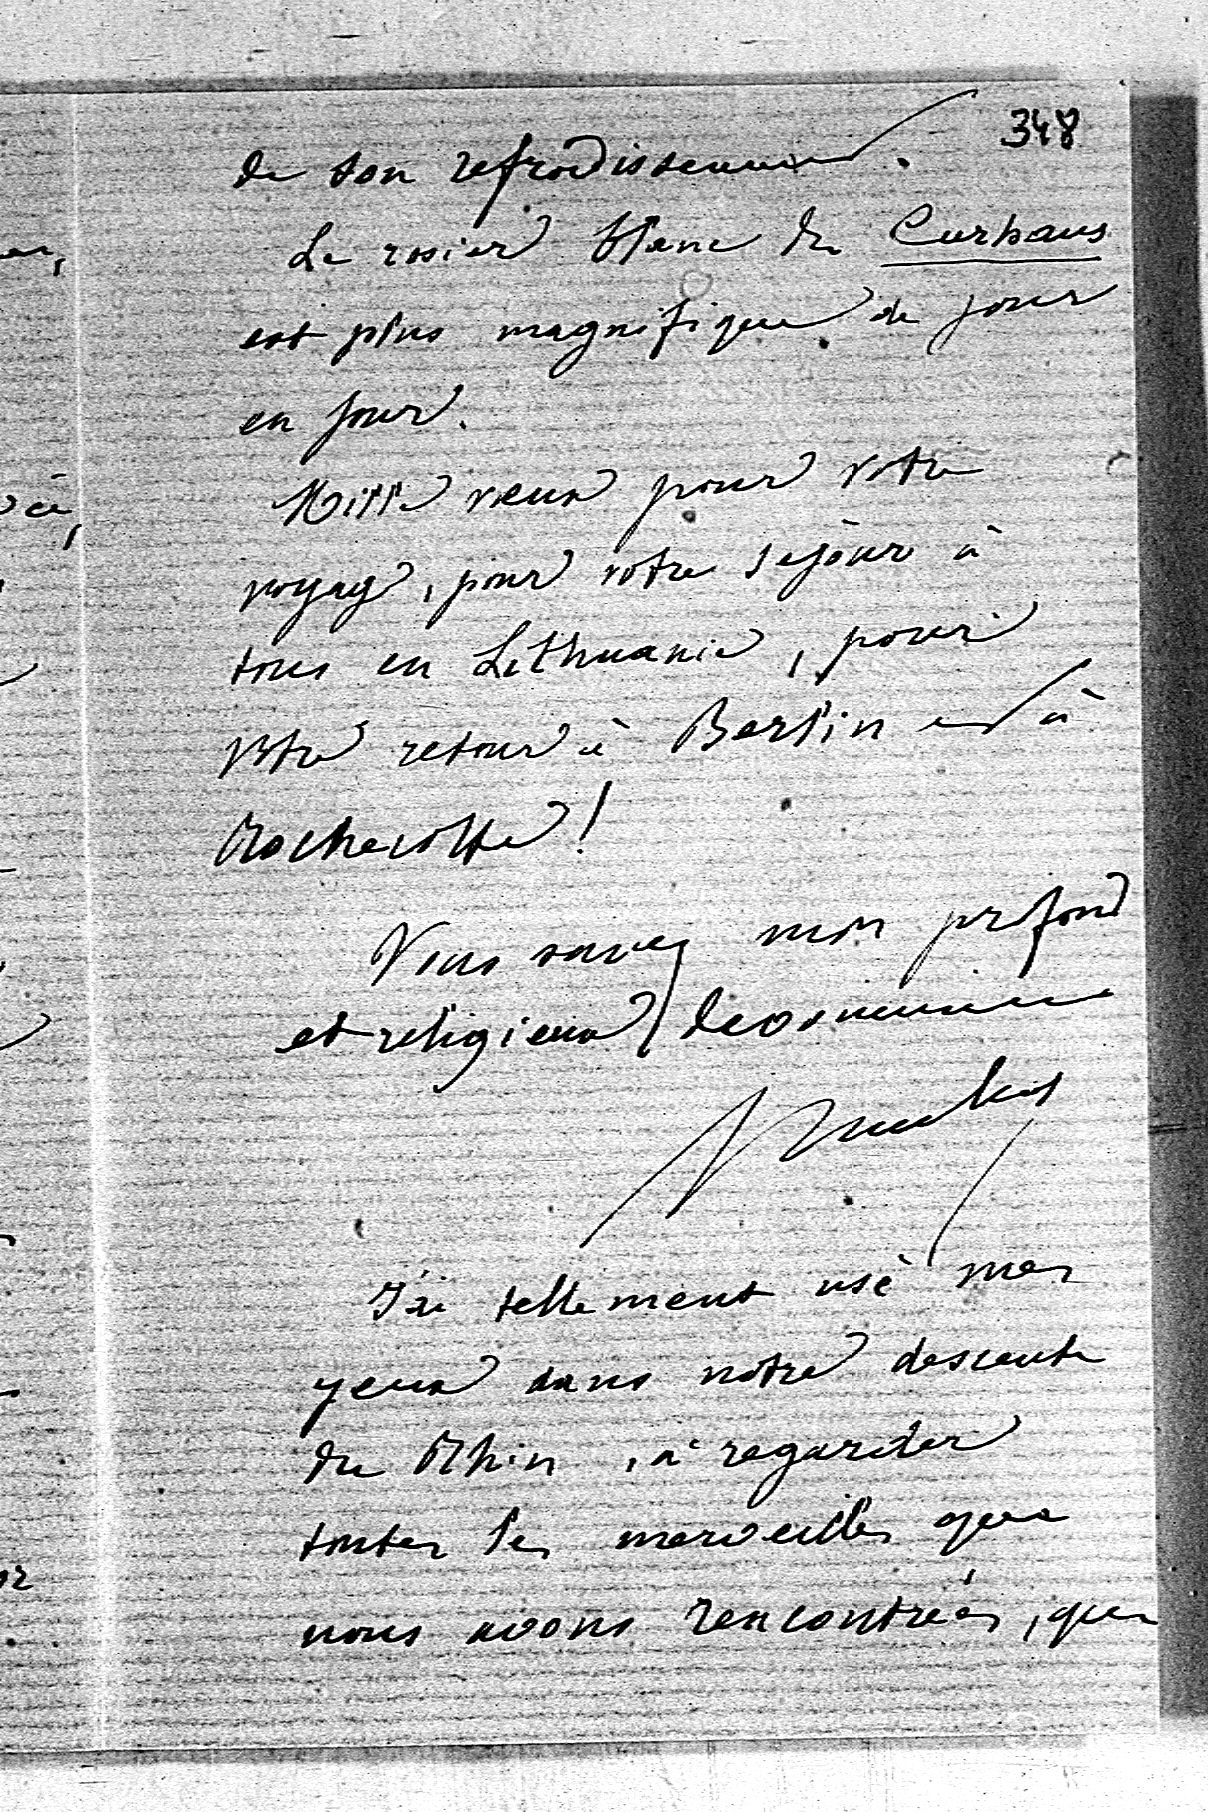 348
de son refroidissement.
Le rosier blanc du Curhaus
est plus magnifique de jour
en jour.
Mille vœux pour votre
voyage, pour votre séjour à
tous en Lithuanie, pour
votre retour à Berlin et à
Rochecotte!
Vous savez mon profond
et religieux dévouement
J'ai tellement usé mes
yeux dans notre descente
du Rhin, à regarder
toutes les merveilles que
nous avons rencontrées, que